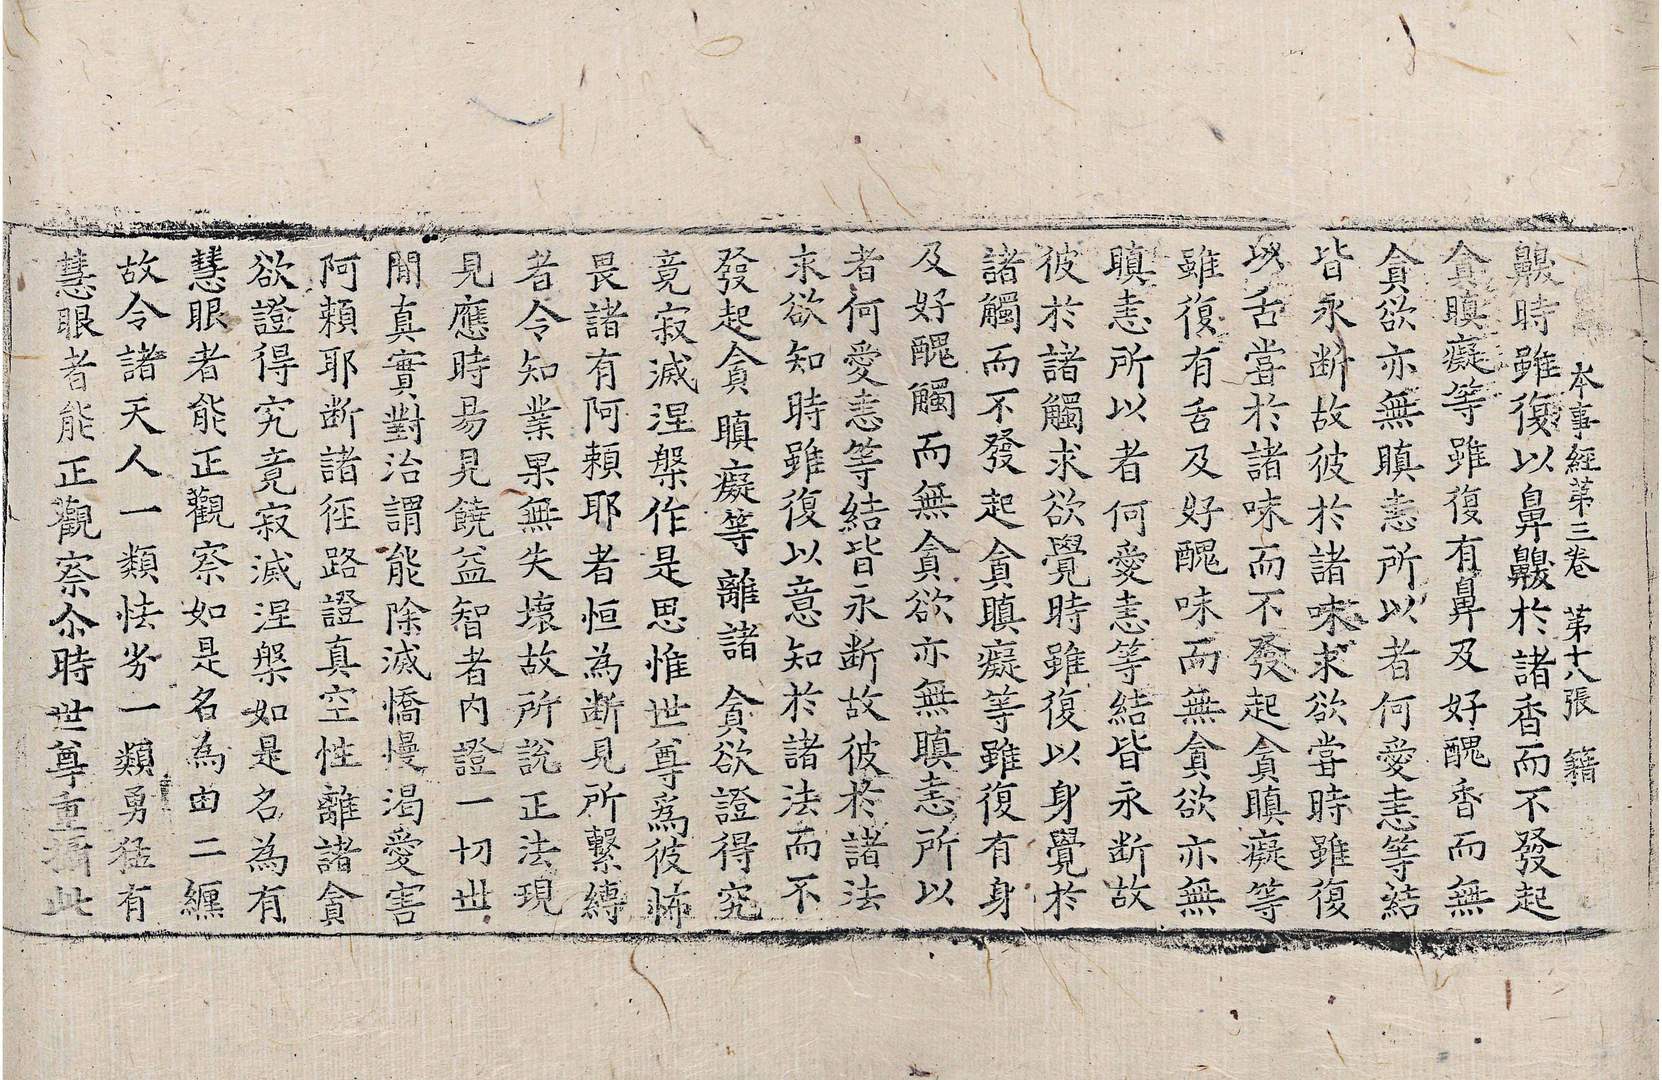 本事經第三卷　第十八張　籍
齅時雖復以鼻齅於諸香而不發起
貪瞋癡等雖復有鼻及好醜香而無
貪欲亦無瞋恚所以者何愛恚等結
皆永断故彼於諸味求欲當時雖復
以舌當於諸味而不發起貪瞋癡等
雖復有舌及好醜味而無貪欲亦無
瞋恚所以者何愛恚等結皆永断故
彼於諸觸求欲覺時雖復以身覺於
諸觸而不發起貪瞋癡等雖復有身
及好醜觸而無貪欲亦無瞋恚所以
者何愛恚等結皆永断故彼於諸法
求欲知時雖復以意知於諸法而不
發起貪瞋癡等離諸貪欲證得究
竟寂滅涅槃作是思惟世尊爲彼怖
畏諸有阿賴耶者恒為断見所繫縛
者令知業果無失壞故所說正法現
見應時易見饒益智者內證一切世
間真實對治謂能除滅憍慢渴愛害
阿賴耶断諸徑路證真空性離諸貪
欲證得究竟寂滅涅槃如是名為有
慧眼者能正觀察如是名為由二纏
故令諸天人一類怯劣一類勇猛有
慧眼者能正觀察尒時世尊重攝此